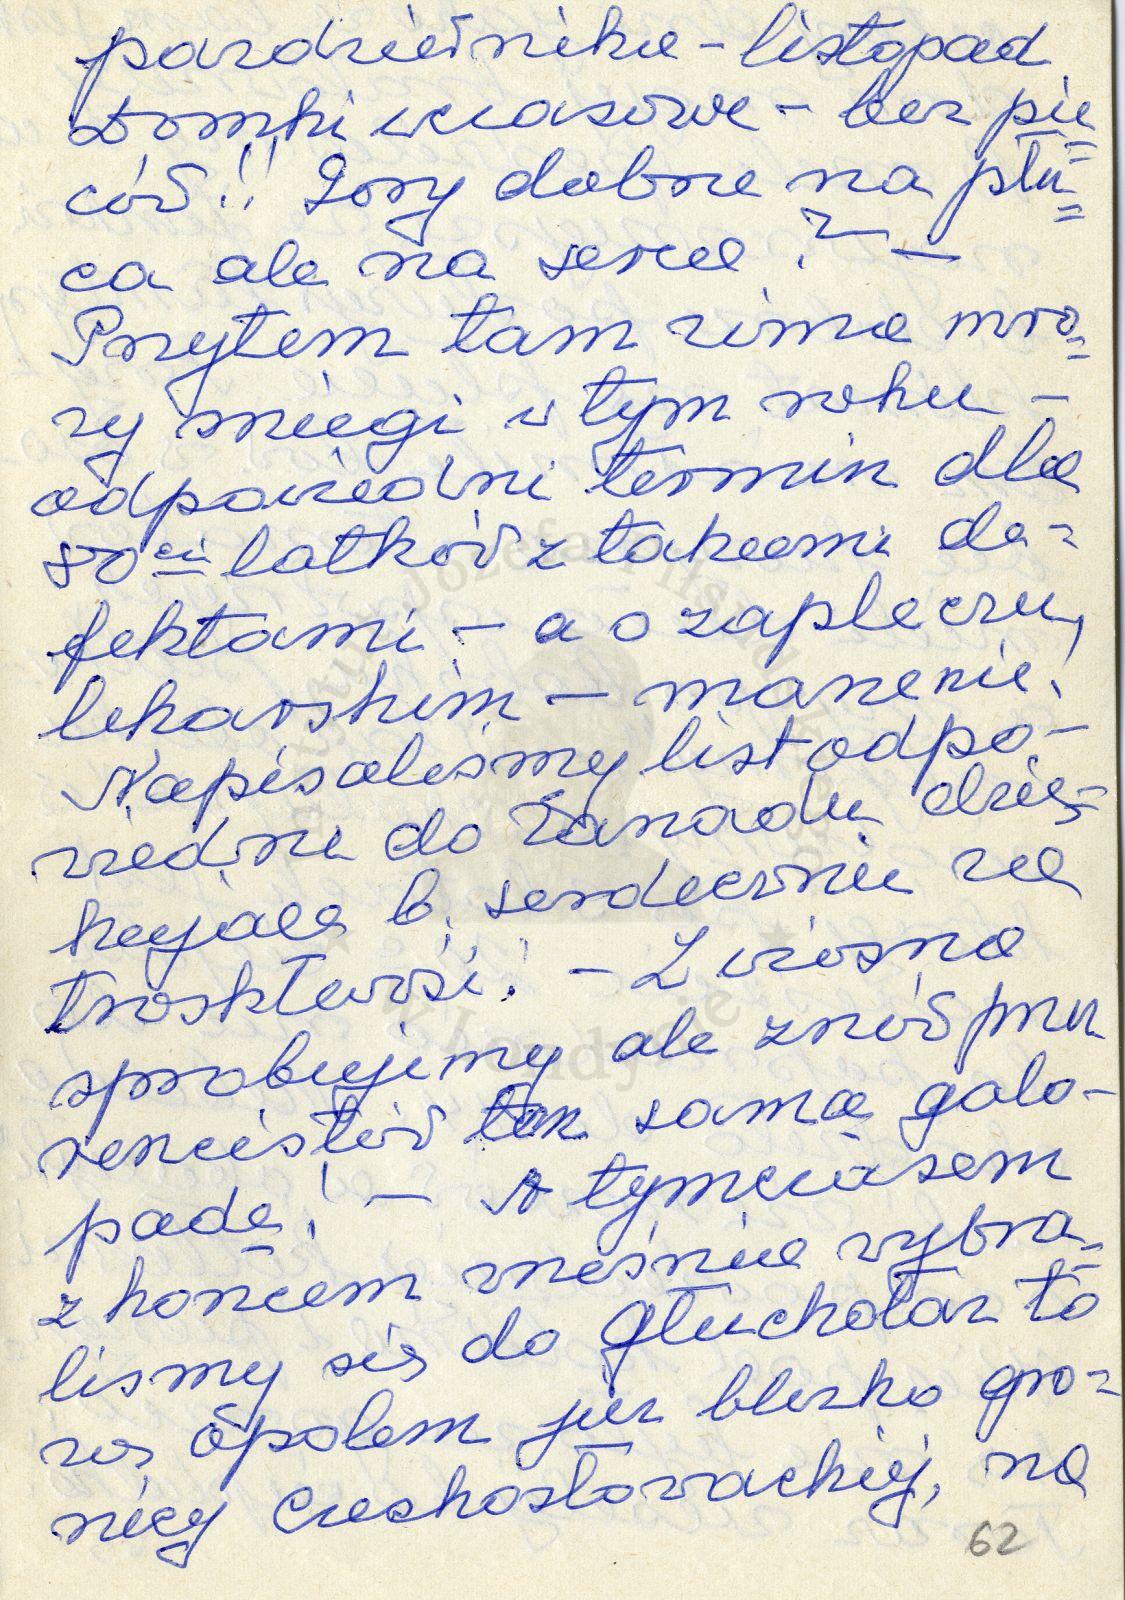 pazdzierniku – listopad
Domki wczasowe – bez pie
ców!! Gory dobre na płu
ca ale na serce? –
Przytem tam zima mro
zy sniegi w tym roku –
odpowiedni termin dla
80ci latków z takiemi de-
fektami – a o zapleczu
lekarskim – marzenie!
Napisaliśmy list odpo-
wiedni do Zarządu dzię-
kując b. serdecznie za
troskliwość! – Z wiosną
sprobujemy ale znów przy
sencistów ten sama galo-
pada! – A tymczasem
z końcem wrześnie wybra
lismy się do Głuchołaz to
za Opolem już blizko gra-
nicy Czeskosłowackiej, na
62